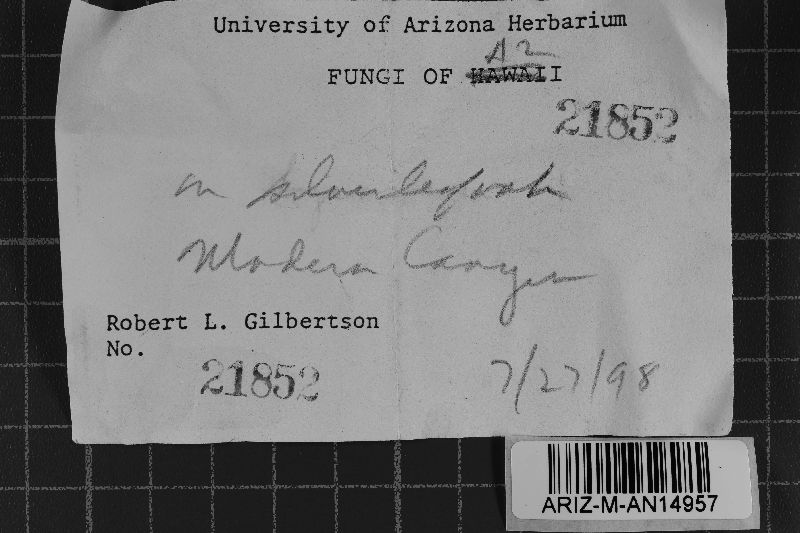 University of Arizona Herbarium
AZ
FUNGI OF HAWAII
21852
on silverleaf oak
Madera Canyon
Robert L. Gilbertson
No.
21852
7/27/98
ARIZ-M-AN14957